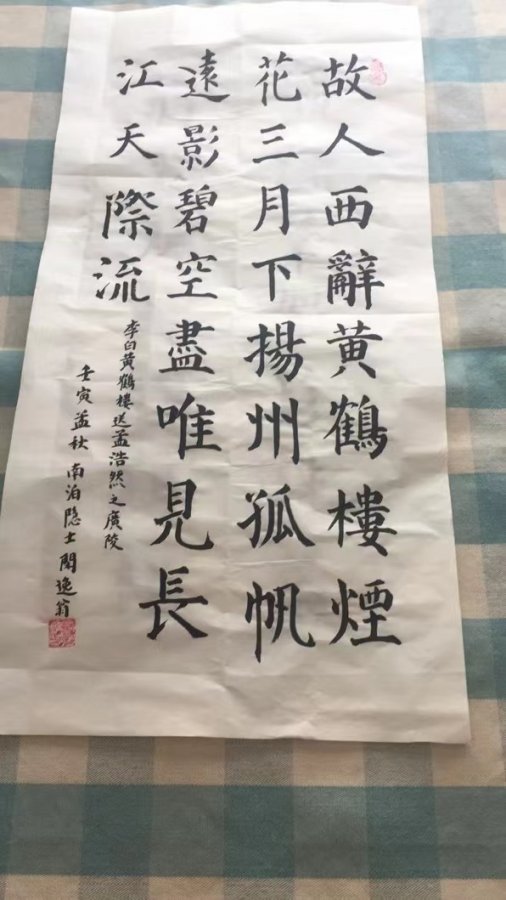 故人西辭黄鶴樓煙
花三月下揚州孤帆
遠影碧空盡唯見長
江天際流
李白黄鶴樓送孟浩然之廣陵
壬寅孟秋南泊隐士閑逸翁